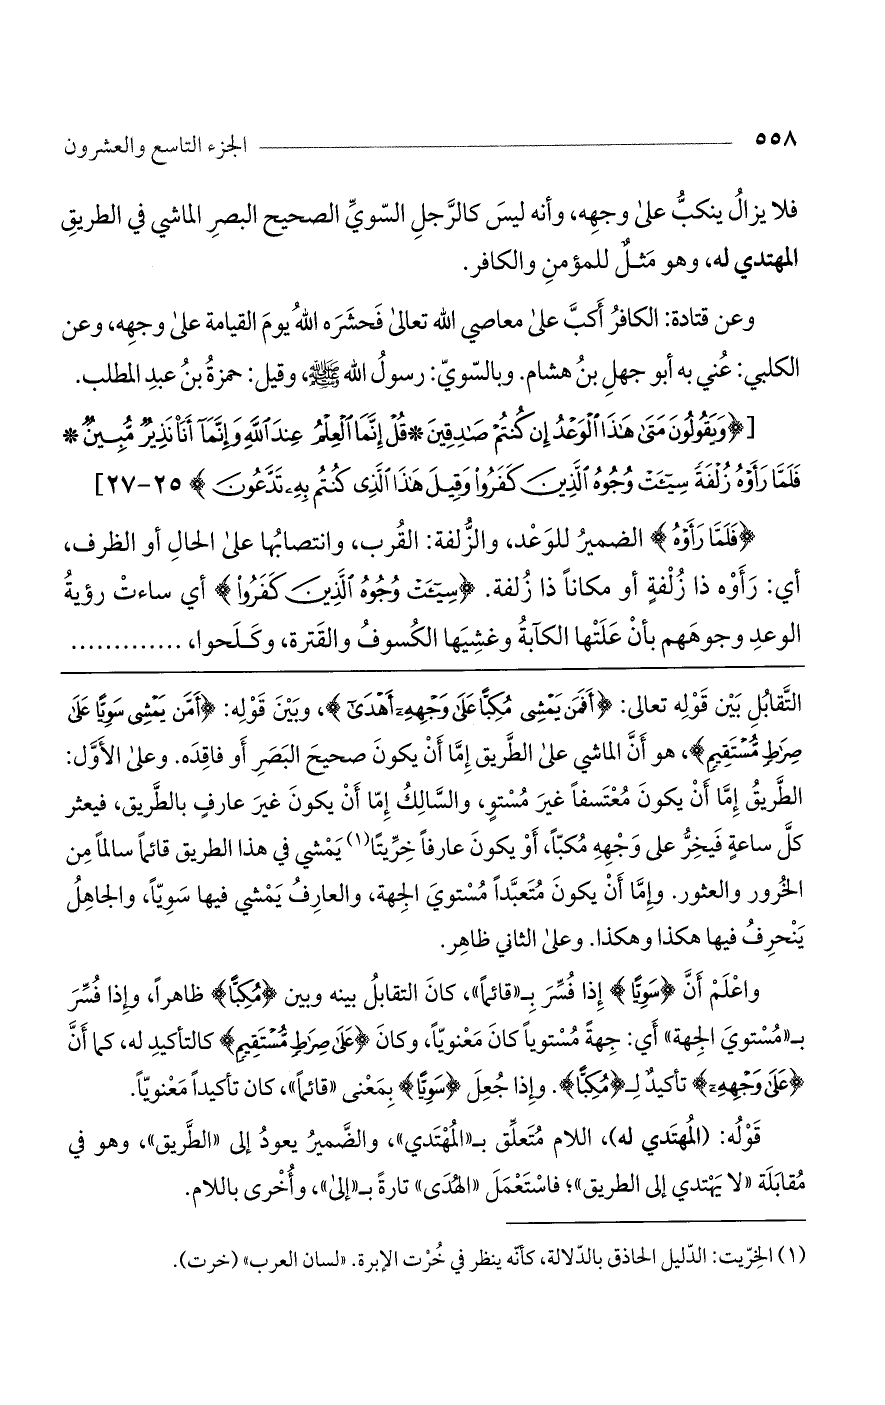 ٥٥٨ الجزء التاسع والعشرون
فلا يزالُ ينكبُّ علىٰ وجهِه، وأنه ليسَ كالرَّجلِ السّويِّ الصحيح البصرِ الماشي في الطريقِ
المهتدي له، وهو مَثلٌ للمؤمنِ والكافر.
وعن قتادة: الكافرُ أَكبَّ علىٰ معاصي الله تعالىٰ فَحشَرَه اللهُ يومَ القيامة علىٰ وجهِه، وعن
الكلبي: عُني به أبو جهلِ بنُ هشام. وبالسّويّ: رسولُ الله ﷺ، وقيل: حمزةُ بنُ عبدِ المطلب.
[﴿وَيَقُولُونَ مَتَىٰ هَٰذَا ٱلْوَعْدُ إِن كُنتُمْ صَٰدِقِينَ * قُلْ إِنَّمَا ٱلْعِلْمُ عِندَ ٱللَّهِ وَإِنَّمَآ أَنَا۠ نَذِيرٌ مُّبِينٌ *
فَلَمَّا رَأَوْهُ زُلْفَةً سِيٓـَٔتْ وُجُوهُ ٱلَّذِينَ كَفَرُواْ وَقِيلَ هَٰذَا ٱلَّذِى كُنتُم بِهِۦ تَدَّعُونَ﴾ ٢٥-٢٧]
﴿فَلَمَّا رَأَوْهُ﴾ الضميرُ للوَعْد، والزُّلفة: القُرب، وانتصابُها علىٰ الحالِ أو الظرف،
أي: رَأَوْه ذا زُلْفةٍ أو مكاناً ذا زُلفة. ﴿سِيٓـَٔتْ وُجُوهُ ٱلَّذِينَ كَفَرُواْ﴾ أي ساءتْ رؤيةُ
الوعدِ وجوهَهم بأنْ عَلَتْها الكآبةُ وغشِيَها الكُسوفُ والقَترة، وكَلَحوا، .............
التَّقابُلِ بَيْن قَوْلِه تعالى: ﴿أَفَمَن يَمْشِى مُكِبًّا عَلَىٰ وَجْهِهِۦٓ أَهْدَىٰٓ﴾، وبَيْنَ قَوْلِه: ﴿أَمَّن يَمْشِى سَوِيًّا عَلَىٰ
صِرَٰطٍ مُّسْتَقِيمٍ﴾، هو أنَّ الماشي علىٰ الطَّريق إمَّا أَنْ يكونَ صحيحَ البَصَرِ أو فاقِدَه. وعلىٰ الأوَّل:
الطَّريقُ إمَّا أَنْ يكونَ مُعْتَسفاً غيرَ مُسْتوٍ، والسَّالِكُ إمّا أَنْ يكونَ غيرَ عارفٍ بالطَّريق، فيعثر
كلَّ ساعةٍ فَيَخِرُّ على وَجْهِهِ مُكبّاً، أَوْ يكونَ عارفاً خِرِّيتًا(١) يَمْشي في هذا الطريق قائماً سالماً مِن
الخُرور والعثور. وإمَّا أَنْ يكونَ مُتَعبَّداً مُسْتويَ الجِهة، والعارِفُ يَمْشي فيها سَوِيّاً، والجاهِلُ
يَنْحرِفُ فيها هكذا وهكذا. وعلىٰ الثاني ظاهِر.
واعْلَمْ أنَّ ﴿سَوِيًّا﴾ إذا فُسِّرَ بِـ«قائماً»، كانَ التقابلُ بينه وبين ﴿مُكِبًّا﴾ ظاهراً، وإذا فُسِّرَ
بـ«مُسْتويَ الجهة» أي: جهةً مُسْتوياً كانَ مَعْنويّاً، وكانَ ﴿عَلَىٰ صِرَٰطٍ مُّسْتَقِيمٍ﴾ كالتأكيدِ له، كما أنَّ
﴿عَلَىٰ وَجْهِهِۦٓ﴾ تأكيدٌ لِـ﴿مُكِبًّا﴾. وإذا جُعِلَ ﴿سَوِيًّا﴾ بِمَعْنى «قائماً»، كان تأكيداً مَعْنويّاً.
قَوْلُه: (المُهتَدي له)، اللام مُتَعلِّق بـ«المُهْتَدي»، والضَّميرُ يعودُ إلى «الطَّريق»، وهو في
مُقابَلَة «لا يَهْتدي إلى الطريق»؛ فاسْتَعْمَلَ «الهُدَى» تارةً بـ«إلىٰ»، وأُخْرى باللام.
(١) الخِرّيت: الدّليل الحاذق بالدّلالة، كأنّه ينظر في خُرْت الإبرة. «لسان العرب» (خرت).